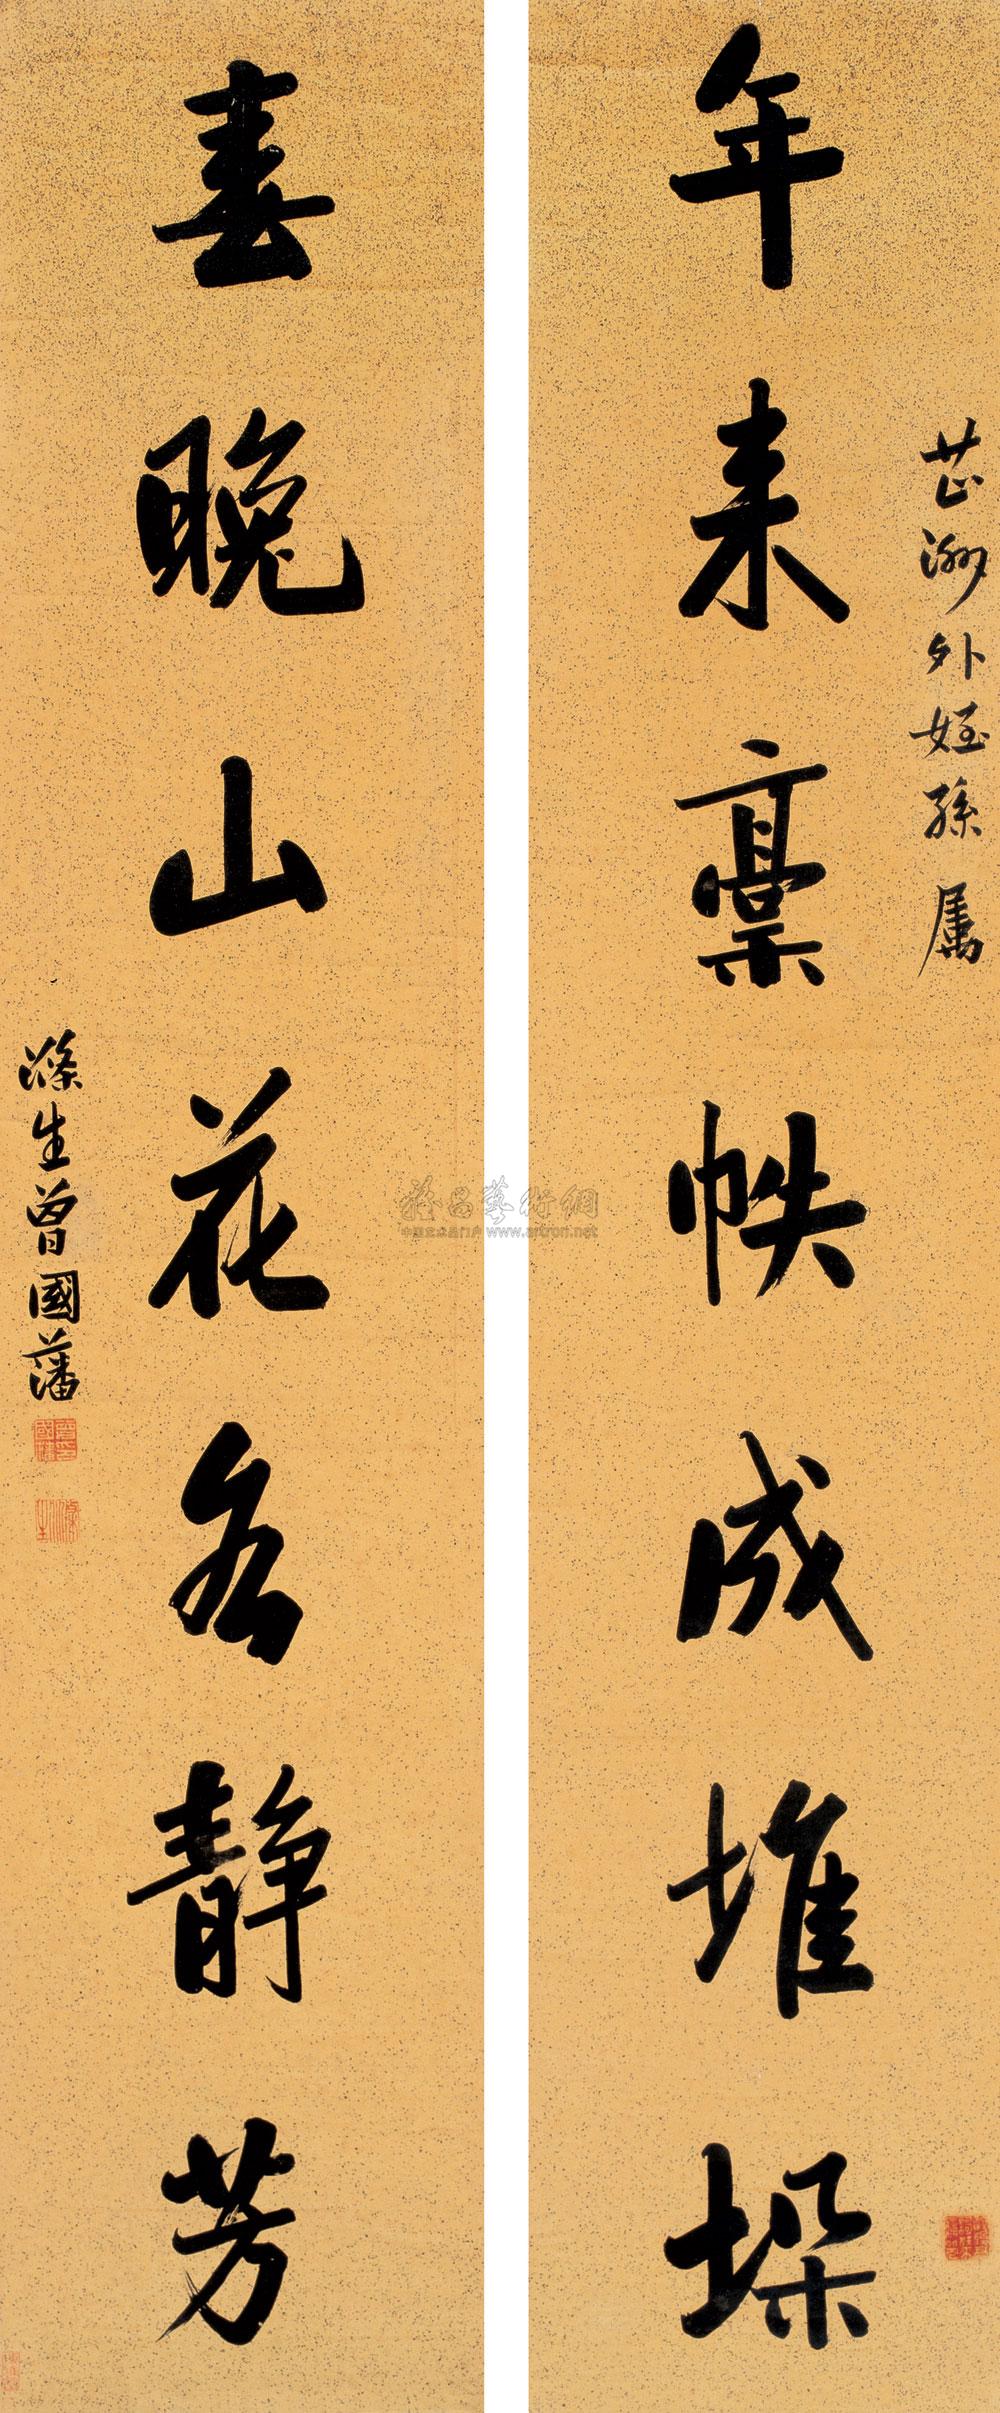 芷洲外姪孫屬
年来稾帙成堆垛
春晚山花各静芳
滌生曾國藩
www.artron.net